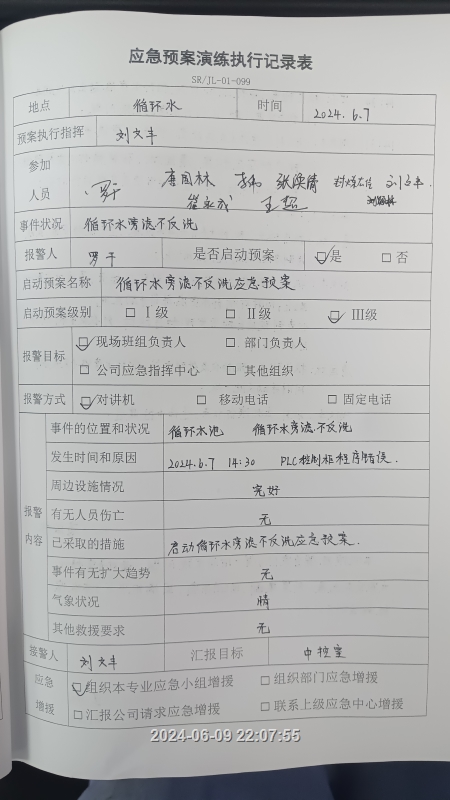 应急预案演练执行记录表
SR/JL-01-099
地点 循环水 时间 2024.6.7
预案执行指挥 刘文丰
参加 罗干 唐国林 李伟 张焕倩 刘文丰
人员 崔永成 王超
事件状况 循环水旁滤不反洗
报警人 罗干 是否启动预案 ☑是 □否
启动预案名称 循环水旁滤不反洗应急预案
启动预案级别 □ Ⅰ级 □ Ⅱ级 ☑ Ⅲ级
报警目标 ☑现场班组负责人 □ 部门负责人
□ 公司应急指挥中心 □ 其他组织
报警方式 ☑对讲机 □ 移动电话 □ 固定电话
报警内容
事件的位置和状况 循环水池 循环水旁滤不反洗
发生时间和原因 2024.6.7 14:30 PLC控制柜程序错误.
周边设施情况 完好
有无人员伤亡 无
已采取的措施 启动循环水旁滤不反洗应急预案.
事件有无扩大趋势 无
气象状况 晴
其他救援要求 无
接警人 刘文丰 汇报目标 中控室
应急 ☑组织本专业应急小组增援 □ 组织部门应急增援
增援 □ 汇报公司请求应急增援 □ 联系上级应急中心增援
2024-06-09 22:07:55